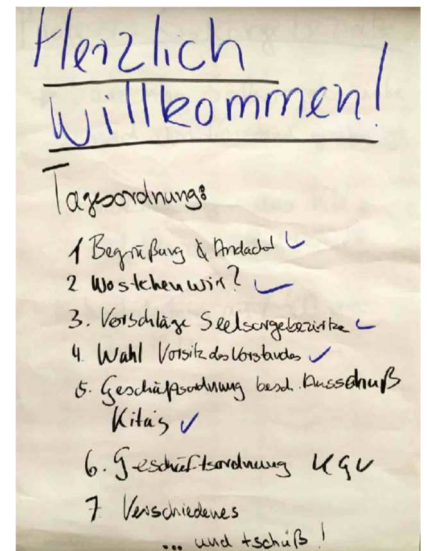 Herzlich
willkommen!
Tagesordnung:
1 Begrüßung & Andacht ✓
2 Wo stehen wir? ✓
3. Vorschläge Seelsorgebezirke ✓
4. Wahl Vorsitz des Vorstandes ✓
5. Geschäftsordnung besch. Ausschuß
Kita's ✓
6. Geschäftsordnung KGV
7 Verschiedenes
... und tschüß!